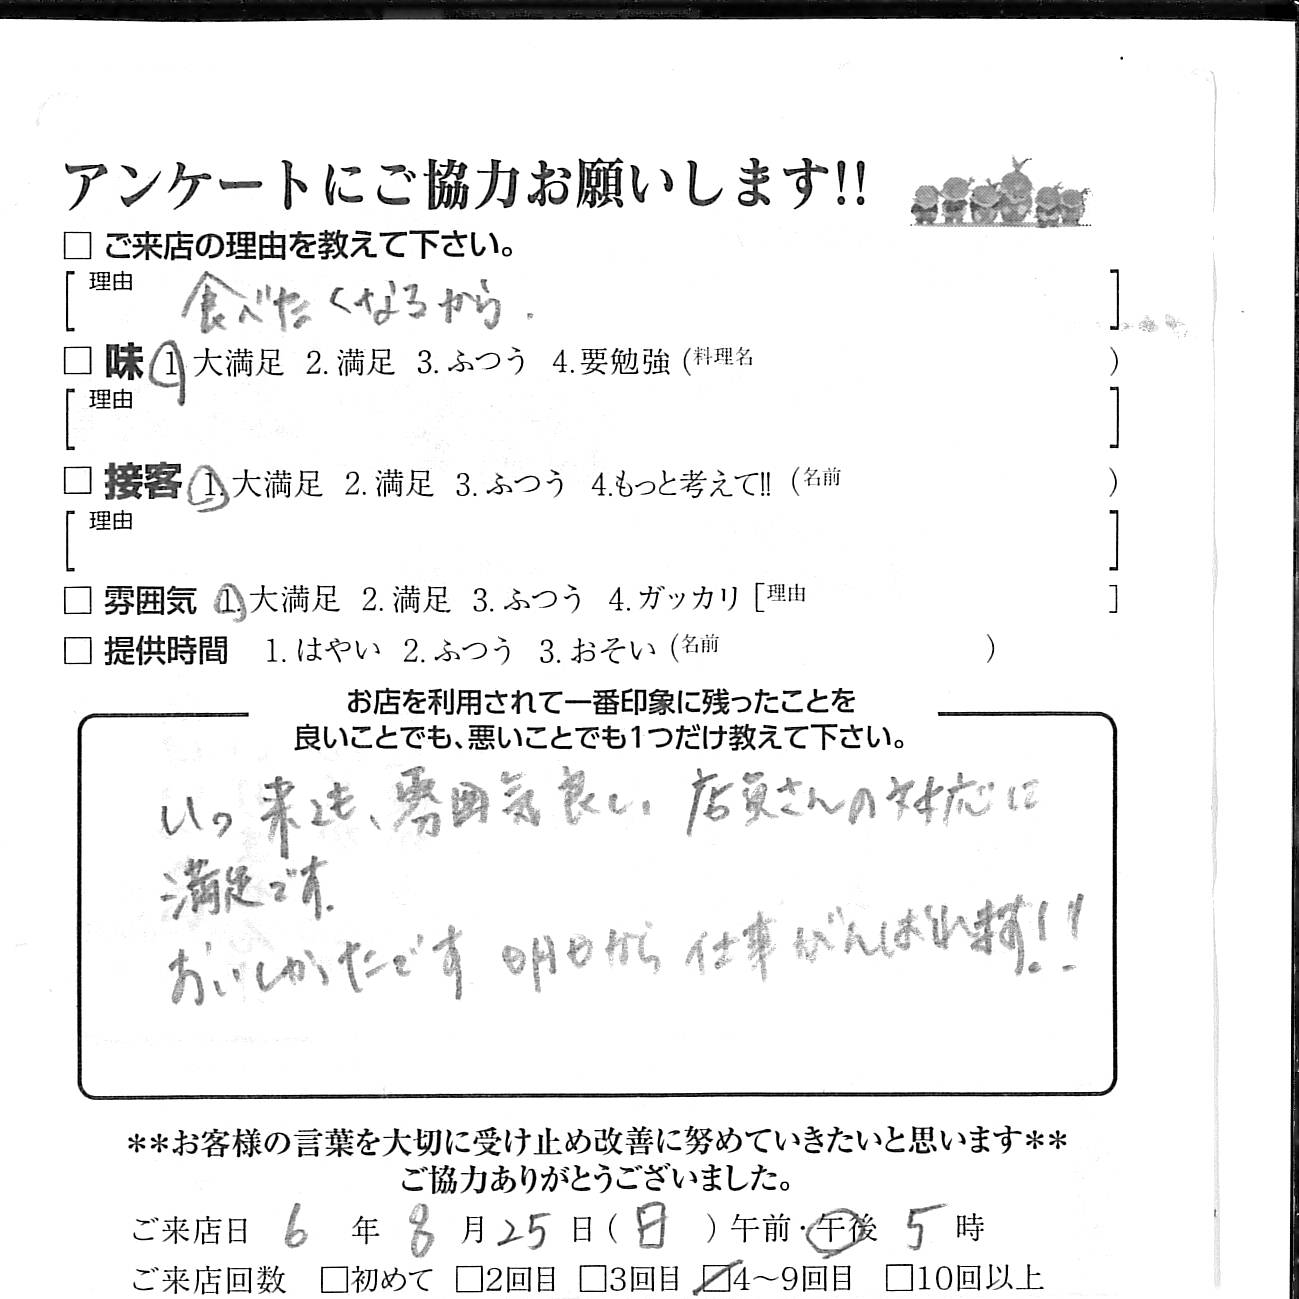 アンケートにご協力お願いします!!
□ ご来店の理由を教えて下さい。
理由 食べたくなるから.
□ 味 1. 大満足 2. 満足 3. ふつう 4. 要勉強 (料理名 )
理由
□ 接客 1. 大満足 2. 満足 3. ふつう 4.もっと考えて!! (名前 )
理由
□ 雰囲気 1. 大満足 2. 満足 3. ふつう 4. ガッカリ [理由 ]
□ 提供時間 1. はやい 2. ふつう 3. おそい (名前 )
お店を利用されて一番印象に残ったことを
良いことでも、悪いことでも1つだけ教えて下さい。
いつ来ても、雰囲気良し、店員さんの対応に
満足です.
おいしかったです 明日から 仕事がんばれます!!
**お客様の言葉を大切に受け止め改善に努めていきたいと思います**
ご協力ありがとうございました。
ご来店日 6 年 8 月 25 日 ( 日 ) 午前・午後 5 時
ご来店回数 □初めて □2回目 □3回目 □4～9回目 □10回以上